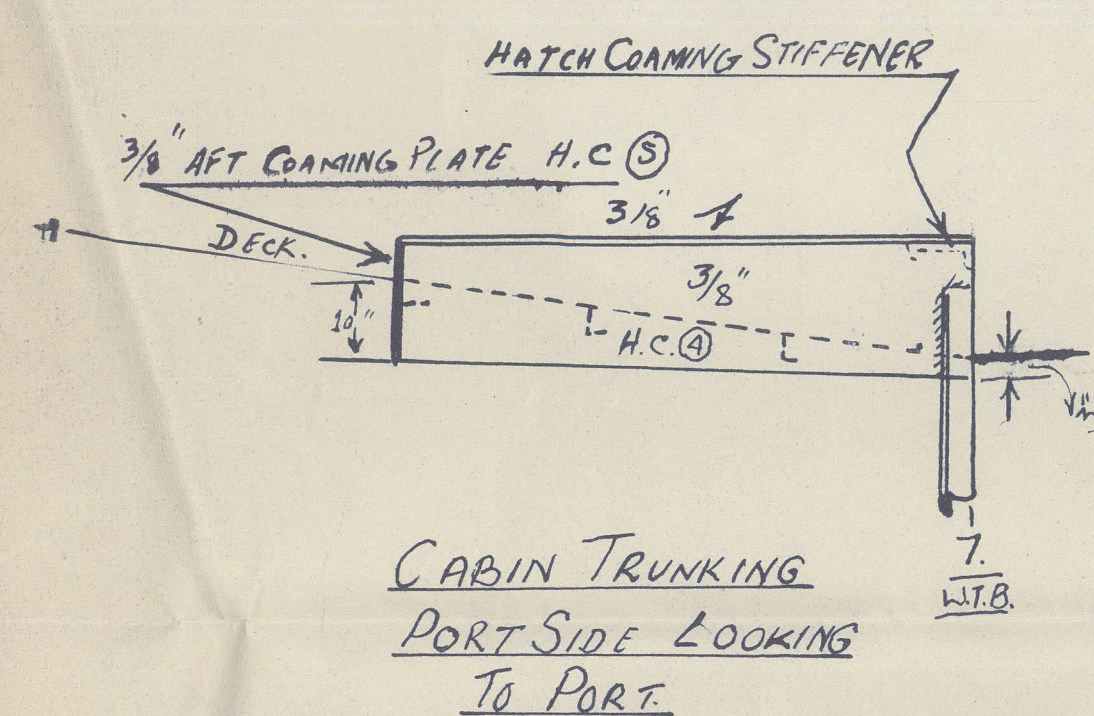 HATCH COAMING STIFFENER
3/8" AFT COAMING PLATE H.C (5)
3/8"
DECK.
3/8"
10"
H.C. (4)
7.
W.T.B.
CABIN TRUNKING
PORT SIDE LOOKING
TO PORT.